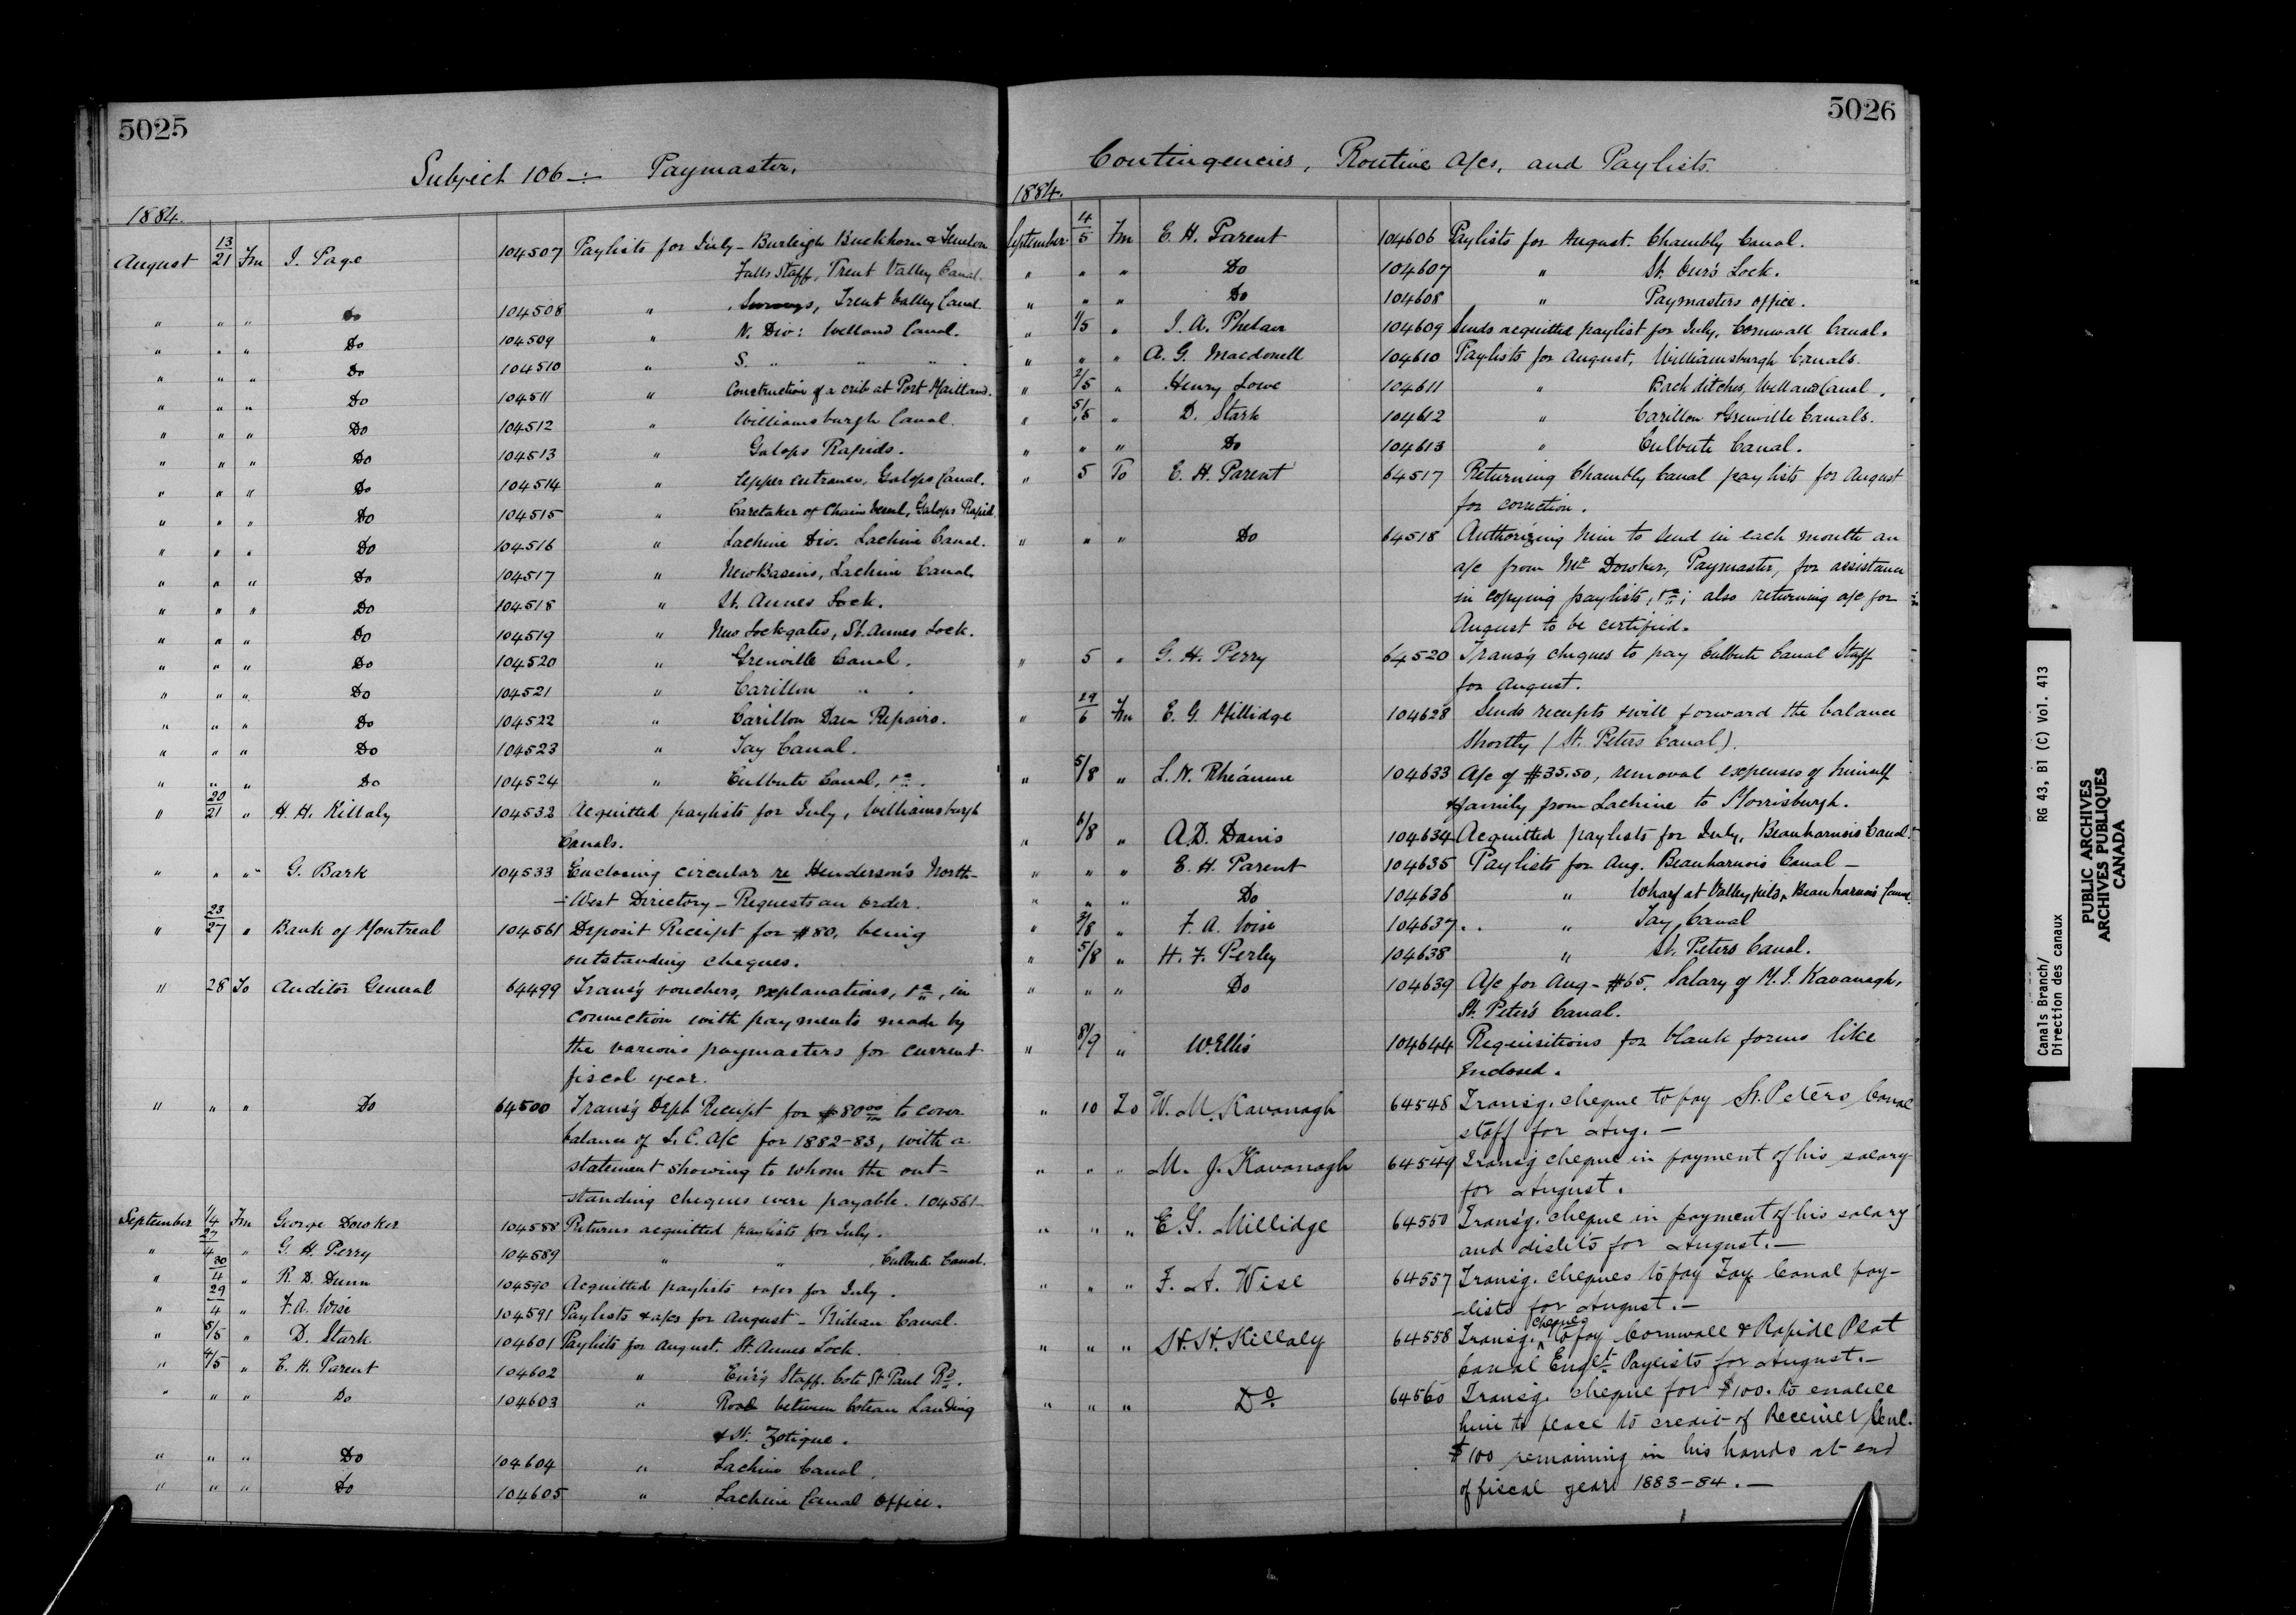 5025
Subject 106 –:– Paymaster,
1884.
August 13/21 Fm J. Page 104507 Paylists for July – Burleigh Buckhorn & Fenelon
Falls staff, Trent Valley Canal.
" " " Do 104508 " Surveys, Trent Valley Canal
" " " Do 104509 " N. Div: Welland Canal.
" " " Do 104510 " S. " " "
" " " Do 104511 " Construction of a crib at Port Maitland.
" " " Do 104512 " Williamsburgh Canal.
" " " Do 104513 " Galops Rapids.
" " " Do 104514 " Upper entrance, Galops Canal.
" " " Do 104515 " Caretaker of Chain Vessel, Galops Rapid.
" " " Do 104516 " Lachine Div. Lachine Canal.
" " " Do 104517 " New Basins, Lachine Canal.
" " " Do 104518 " St. Annes Lock.
" " " Do 104519 " New Lockgates, St. Annes Lock.
" " " Do 104520 " Grenville Canal.
" " " Do 104521 " Carillon " .
" " " Do 104522 " Carillon Dam Repairs.
" " " Do 104523 " Tay Canal.
" " " Do 104524 " Culbute Canal, &c.
" 20/21 " H. H. Killaly 104532 Acquitted paylists for July, Williamsburgh
Canals.
" " " G. Bark 104533 Enclosing circular re Henderson's North-
-West Directory – Requests an order.
" 23/27 " Bank of Montreal 104561 Deposit Receipt for $80, being
outstanding cheques.
" 28 To Auditor General 64499 Trans'g vouchers, explanations, &c, in
connection with payments made by
the various paymasters for current
fiscal year.
" " " Do 64500 Trans'g Dept Receipt for $80 00 to cover
balance of L. C. A/c for 1882-83, with a
statement showing to whom the out-
-standing cheques were payable. 104561
September 1/4 Fm George Dowker 104588 Returns acquitted paylists for July.
" 27/4 " G. H. Perry 104589 " " , Culbute Canal.
" 30/4 " R. D. Dunn 104590 Acquitted paylists & a/cs for July.
" 29/4 " F. A. Wise 104591 Paylists & a/cs for August – Rideau Canal.
" 5/5 " D. Stark 104601 Paylists for August. St. Annes Lock.
" 4/5 " E. H. Parent 104602 " Eng'g Staff. Cote St Paul Rd.
" " " Do 104603 " Road between Coteau Landing
& St. Zotique.
" " " Do 104604 " Lachine Canal.
" " " Do 104605 " Lachine Canal Office.
5026
Contingencies, Routine A/cs, and Paylists.
1884.
September 4/5 Fm E. H. Parent 104606 Paylists for August. Chambly Canal.
" " " Do 104607 " St. Ours Lock.
" " " Do 104608 " Paymasters office.
" 1/5 " J. A. Phelan 104609 Sends acquitted paylist for July, Cornwall Canal.
" " " A. G. Macdonell 104610 Paylists for August, Williamsburgh Canals.
" 2/5 " Henry Lowe 104611 " Back ditches, Welland Canal.
" 5/5 " D. Stark 104612 " Carillon & Grenville Canals.
" " " Do 104613 " Culbute Canal.
" 5 To E. H. Parent 64517 Returning Chambly Canal paylists for August
for correction.
" " " Do 64518 Authorizing him to send in each month an
a/c from Mr Dowker, Paymaster, for assistance
in copying paylists, &c; also returning a/c for
August to be certified.
" 5 " G. H. Perry 64520 Trans'g cheques to pay Culbute Canal Staff
for August.
" 29/6 Fm E. G. Millidge 104628 Sends receipts & will forward the balance
shortly (St. Peters Canal).
" 5/8 " L. N. Rhéaume 104633 A/c of $35.50, removal expenses of himself
& family from Lachine to Morrisburgh.
" 6/8 " A. D. Danis 104634 Acquitted paylists for July, Beauharnois Canal.
" " " E. H. Parent 104635 Paylists for Aug. Beauharnois Canal –
" " " Do 104636 " Wharf at Valleyfield, Beauharnois Canal.
" 3/8 " F. A. Wise 104637. . " Tay Canal
" 5/8 " H. F. Perley 104638 " St. Peters Canal.
" " " Do 104639 A/c for Aug – $65. Salary of M. J. Kavanagh,
St. Peter's Canal.
" 8/9 " W. Ellis 104644 Requisitions for blank forms like
enclosed.
" 10 To W. M. Kavanagh 64548 Transg. cheque to pay St. Peters Canal
staff for Aug. –
" " " M. J. Kavanagh 64549 Transg cheque in payment of his salary
for August.
" " " E. G. Millidge 64550 Trans'g. cheque in payment of his salary
and disb'ts for August. –
" " " F. A. Wise 64557 Transg. cheques to pay Tay Canal pay-
-lists for August. –
" " " H. H. Killaly 64558 Transg. cheques to pay Cornwall & Rapide Plat
Canal Englt Paylists for August. –
" " " Do 64560 Transg. cheque for $100. to enable
him to place to credit of Receiver Genl.
$100 remaining in his hands at end
of fiscal year 1883-84. –
Canals Branch/ RG 43, B1 (C) Vol. 413
Direction des canaux
PUBLIC ARCHIVES
ARCHIVES PUBLIQUES
CANADA